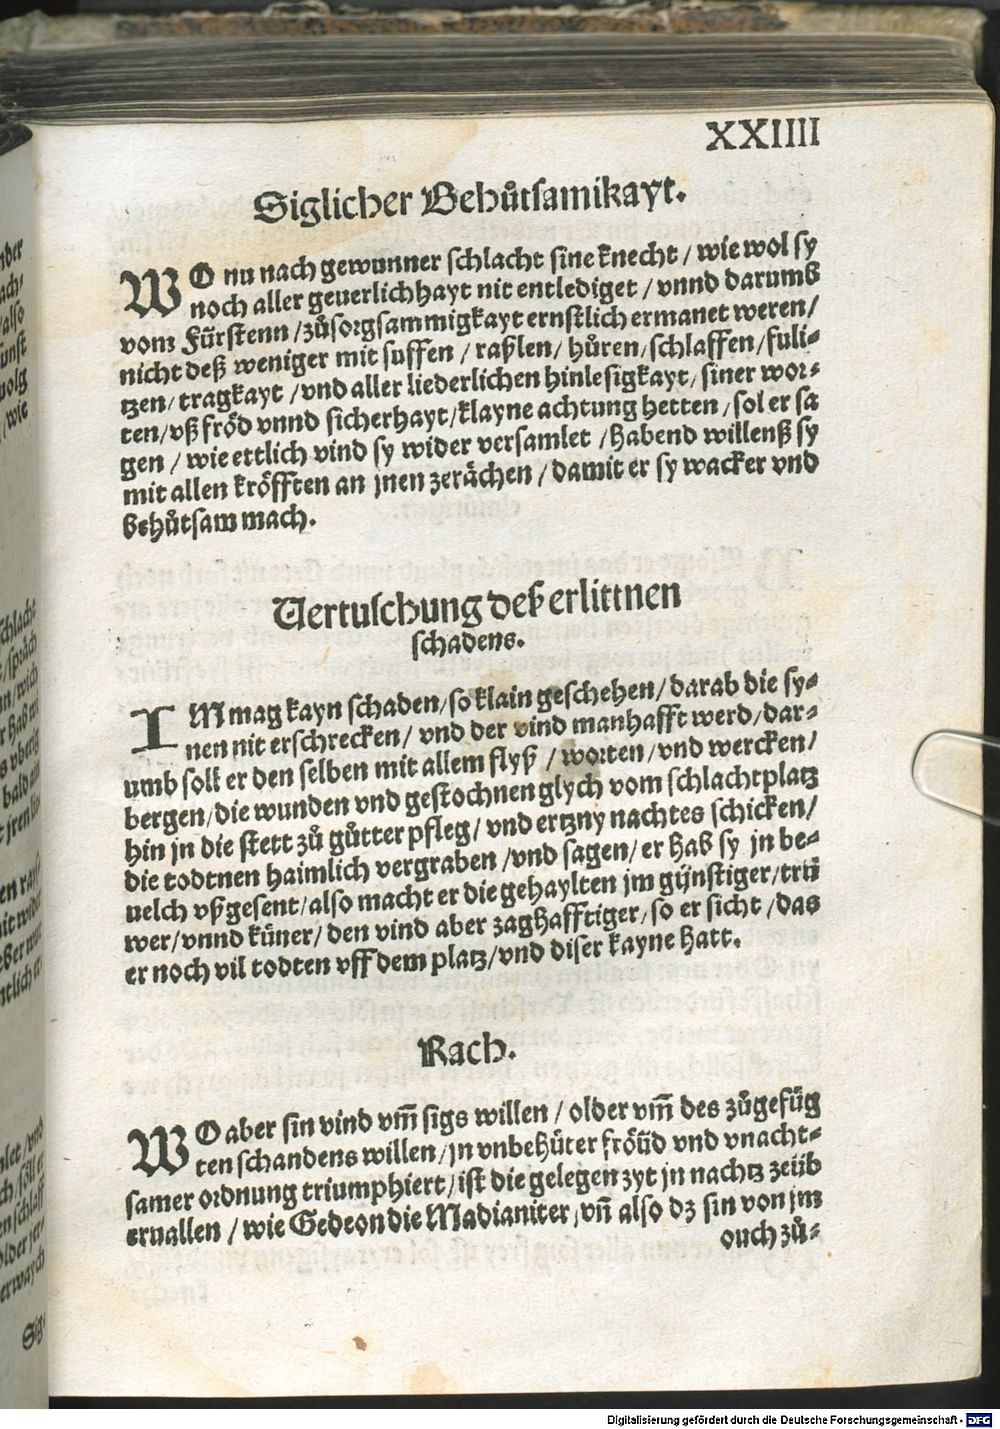 XXIIII
Siglicher Behůtsamikayt.
WO nu nach gewunner schlacht sine knecht / wie wol sy
noch aller geuerlichhayt nit entlediget / vnnd darumb
vom Fürstenn / zůsorgsammigkayt ernstlich ermanet weren /
nicht deß weniger mit suffen / raßlen / hůren / schlaffen / fuli⸗
tzen / tragkayt / vnd aller liederlichen hinlesigkayt / siner wor⸗
ten / vß fröd vnnd sicherhayt / klayne achtung hetten / sol er sa
gen / wie ettlich vind sy wider versamlet / habend willenß sy
mit allen kröfften an jnen zerächen / damit er sy wacker vnd
behůtsam mach.
Vertuschung deß erlittnen
schadens.
IM mag kayn schaden / so klain geschehen / darab die sy⸗
nen nit erschrecken / vnd der vind manhafft werd / dar⸗
umb soll er den selben mit allem flyß / worten / vnd wercken /
bergen / die wunden vnd gestochnen glych vom schlachtplatz
hin jn die stett zů gůtter pfleg / vnd ertzny nachtes schicken /
die todtnen haimlich vergraben / vnd sagen / er hab sy jn be⸗
uelch vßgesent / also macht er die gehaylten jm günstiger / trü
wer / vnnd küner / den vind aber zaghafftiger / so er sicht / das
er noch vil todten vff dem platz / vnd diser kayne hatt.
Rach.
WO aber sin vind vm̃ sigs willen / older vm̃ des zůgefüg
ten schandens willen / jn vnbehůter fröüd vnd vnacht⸗
samer ordnung triumphiert / ist die gelegen zyt jn nachtz zeüb
eruallen / wie Gedeon die Madianiter / vñ also dz sin von jm
ouch zů⸗
nder
ach⸗
/ also
unst
uolg
/ wie
Sig⸗
Digitalisierung gefördert durch die Deutsche Forschungsgemeinschaft - DFG